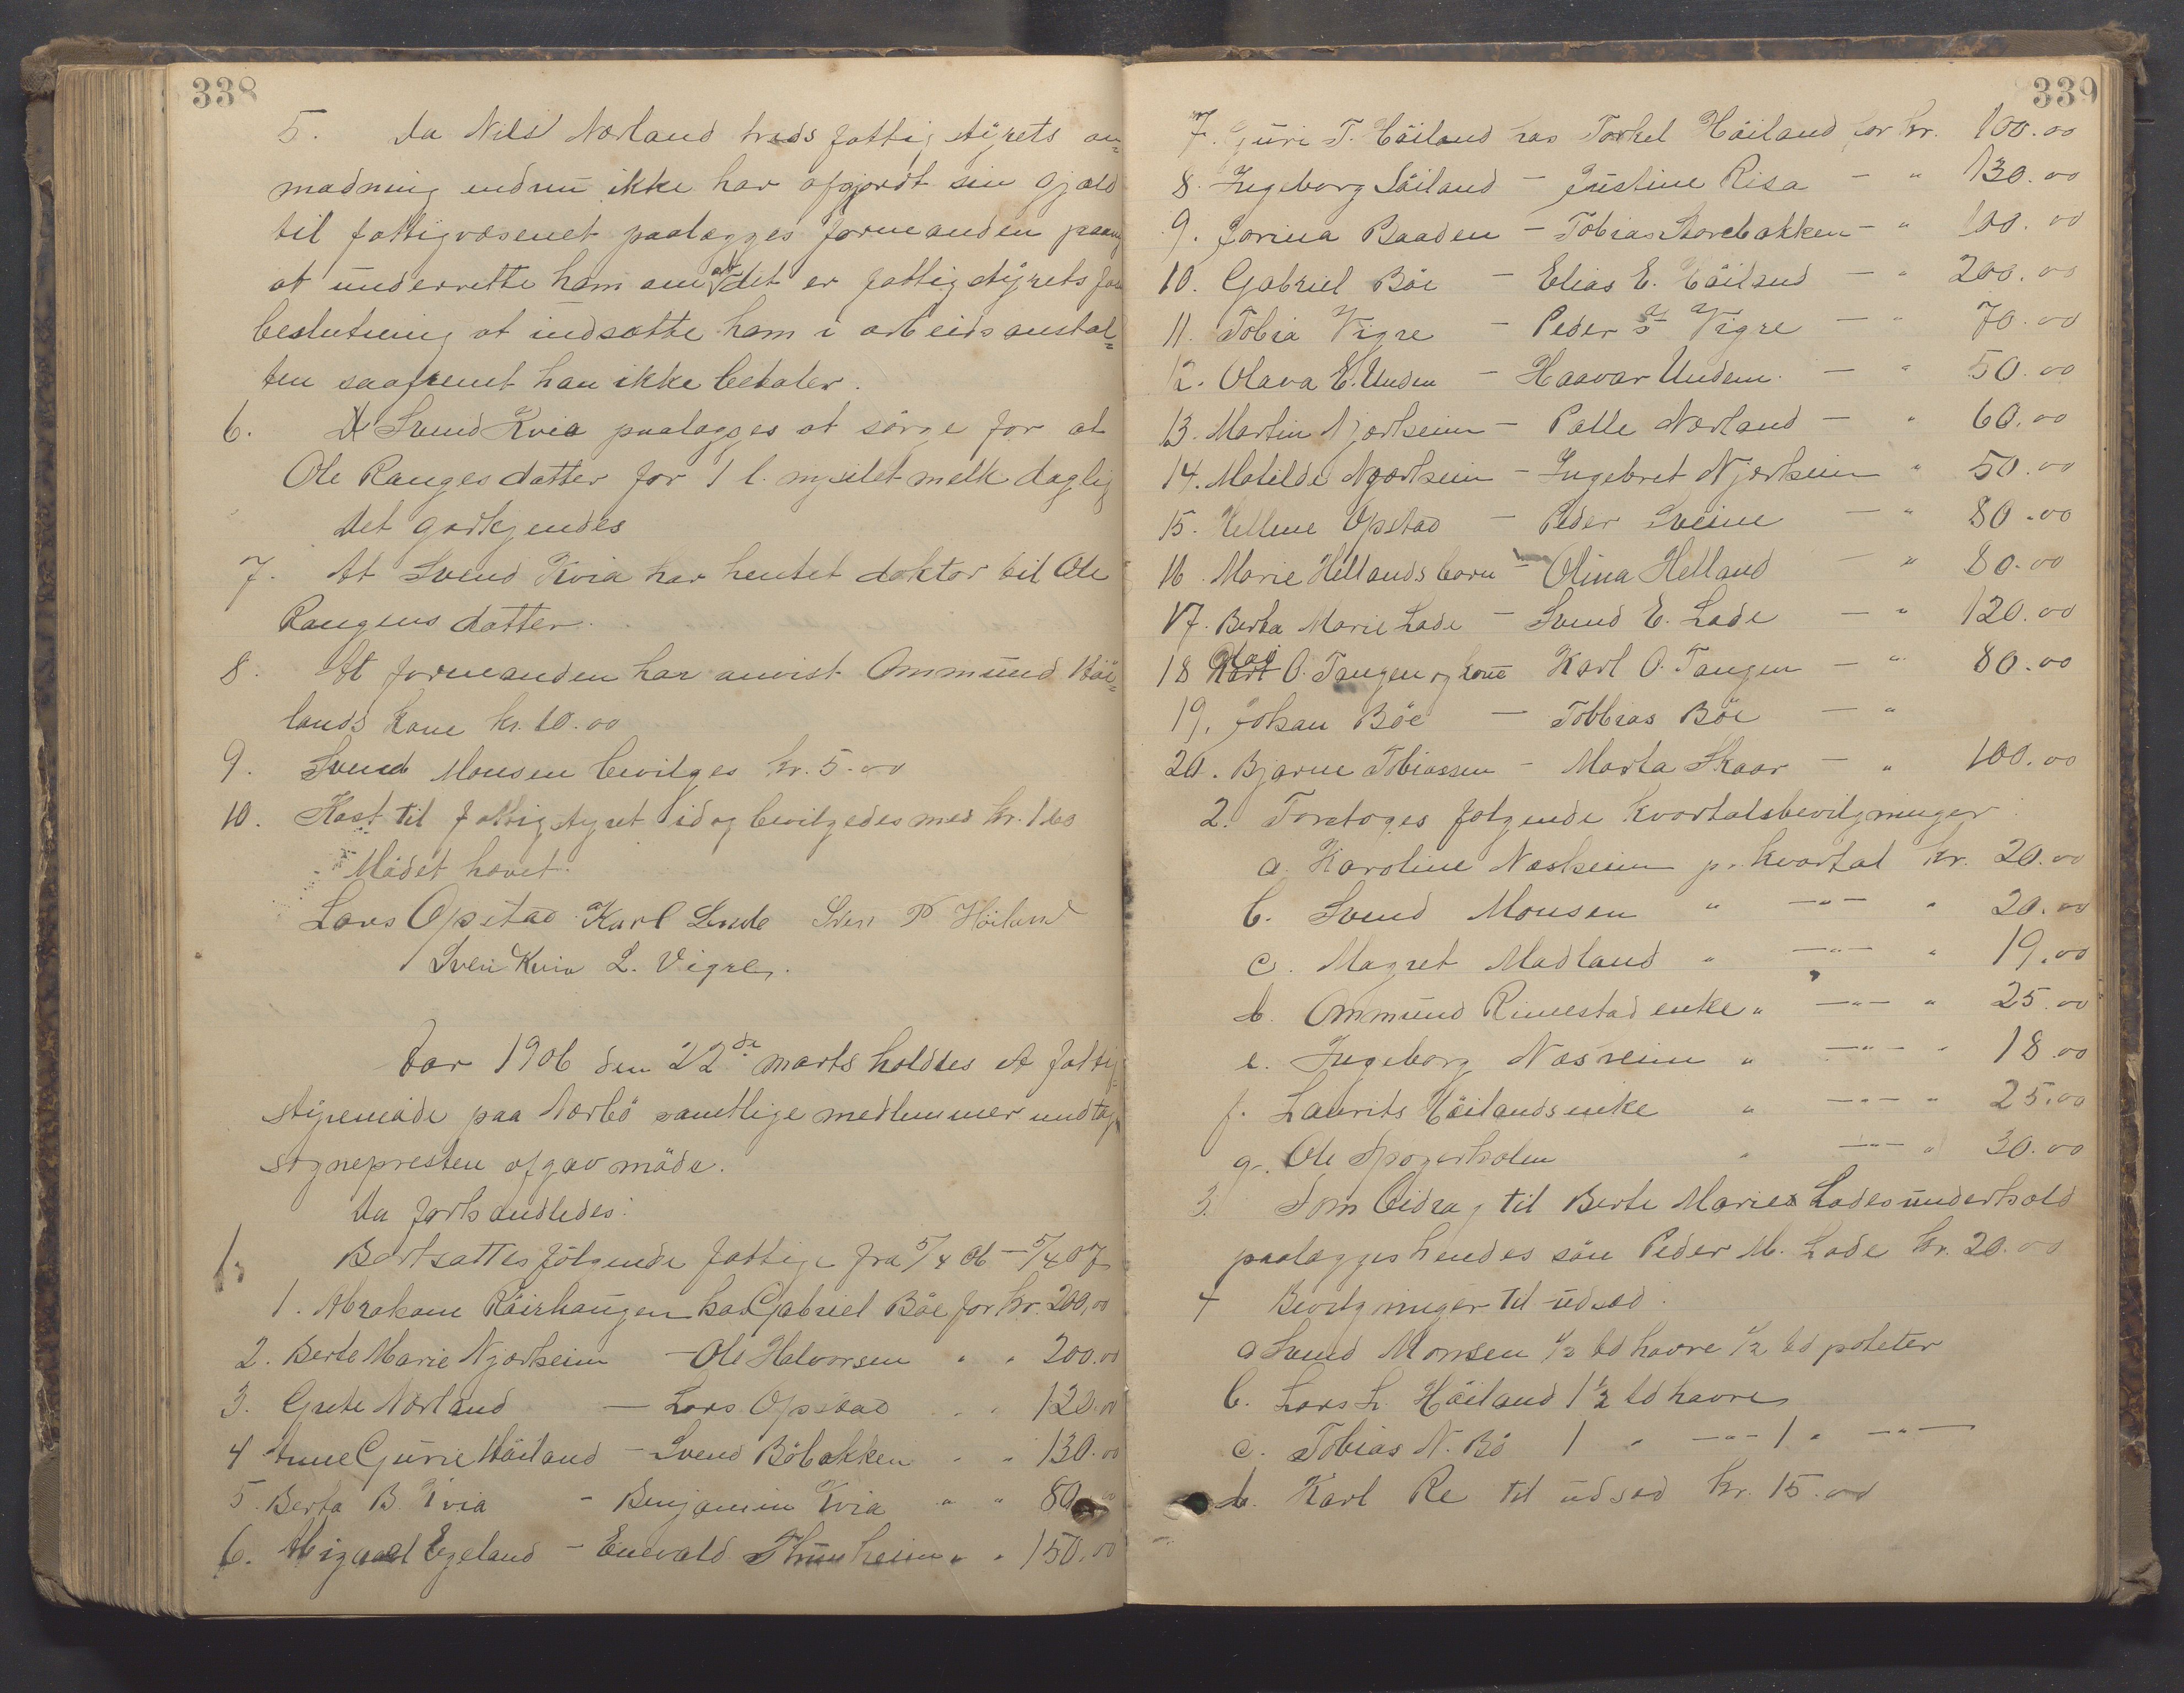 338
5. Da Nils Nærland trods fattigstyrets an=
modning endnu ikke har afgjordt sin gjæld
til fattigvæsenet paalægges formanden paany
at underrette ham om at det er fattigstyrets
beslutning at indsætte ham i arbeidsanstal=
ten saafremt han ikke betaler.
6. Svend Kvia paalægges at sörge for at
Ole Ranges datter for 1 l. nysilet melk daglig
det godkjendes
7. At Svend Kvia har hentet doktor til Ole
Rangens datter.
8. At formanden har anvist Ommund Höi=
lands kone kr. 10.00
9. Svend Monsen bevilges kr. 5.00
10. Kost til fattigstyret idag bevilgedes med kr. 1.60
Mödet hævet.
Lars Opstad Karl Lende Sven P Höiland
Sven Kvia L. Vigre.
Aar 1906 den 22de marts holdtes et fattig=
styremöde paa Nærbö samtlige medlemmer undtagen
sognepresten afgav möde.
Da forhandledes:
1. Bortsattes fölgende fattige fra 5/4 06 - 5/4 07
1. Abraham Röirhaugen hos Gabriel Böe for kr. 200,00
2. Berte Marie Njærheim - Ole Halvorsen " " 200.00
3. Grete Nærland - Lars Opstad " " 120.00
4 Anne Gurie Höiland - Svend Böbakken " " 130.00
5. Berta B. Kvia - Benjamin Kvia " " 80.00
6. Abigael Egeland - Enevald Thunheim " " 150.00
339
7. Guri T. Höiland hos Torkel Höiland for kr. 100.00
8. Ingeborg Höiland - Justine Risa - " 130.00
9. Jorina Baaden - Tobias Storebakken - " 100.00
10. Gabriel Böe - Elias E. Höiland - " 200.00
11. Tobia Vigre - Peder S Vigre - " 70.00
12. Olava E. Undem - Haavar Undem - " 50.00
13. Martin Njærheim - Palle Nærland - " 60.00
14. Matilde Njærheim - Ingebret Njærheim " 50.00
15. Hellene Opstad - Peder Sveine - " 80.00
16. Marie Hellands barn - Olina Helland - " 80.00
17. Berta Marie Lode - Svend E. Lode - " 120.00
18 Olai O. Tangen og kone Karl O. Tangen - " 80.00
19. Johan Böe - Tobbias Böe - "
20. Bjarne Tobiassen - Marta Skaar - " 100.00
2. Foretoges fölgende kvartalsbevilgninger
a. Karoline Næsheim p. kvartal kr. 20.00
b. Svend Monsen " -"- " 20.00
c. Magret Madland " -"- " 19.00
d. Ommund Rimestad enke " -"- " 25.00
e. Ingeborg Næsheim " -"- " 18.00
f. Laurits Höilands enke " -"- " 25.00
g. Ole " -"- " 30.00
3. Som bidrag til Berte Maries Lodes underhold
paalægges hendes sön Peder M. Lode kr. 20.00
4 Bevilgninger til udsæd.
a Svend Monsen 1/2 td havre 1/2 td poteter
b. Lars L. Höiland 1 1/2 td havre
c. Tobias N. Bö 1 " -"- 1 " -"-
d. Karl Re til udsæd kr. 15.00